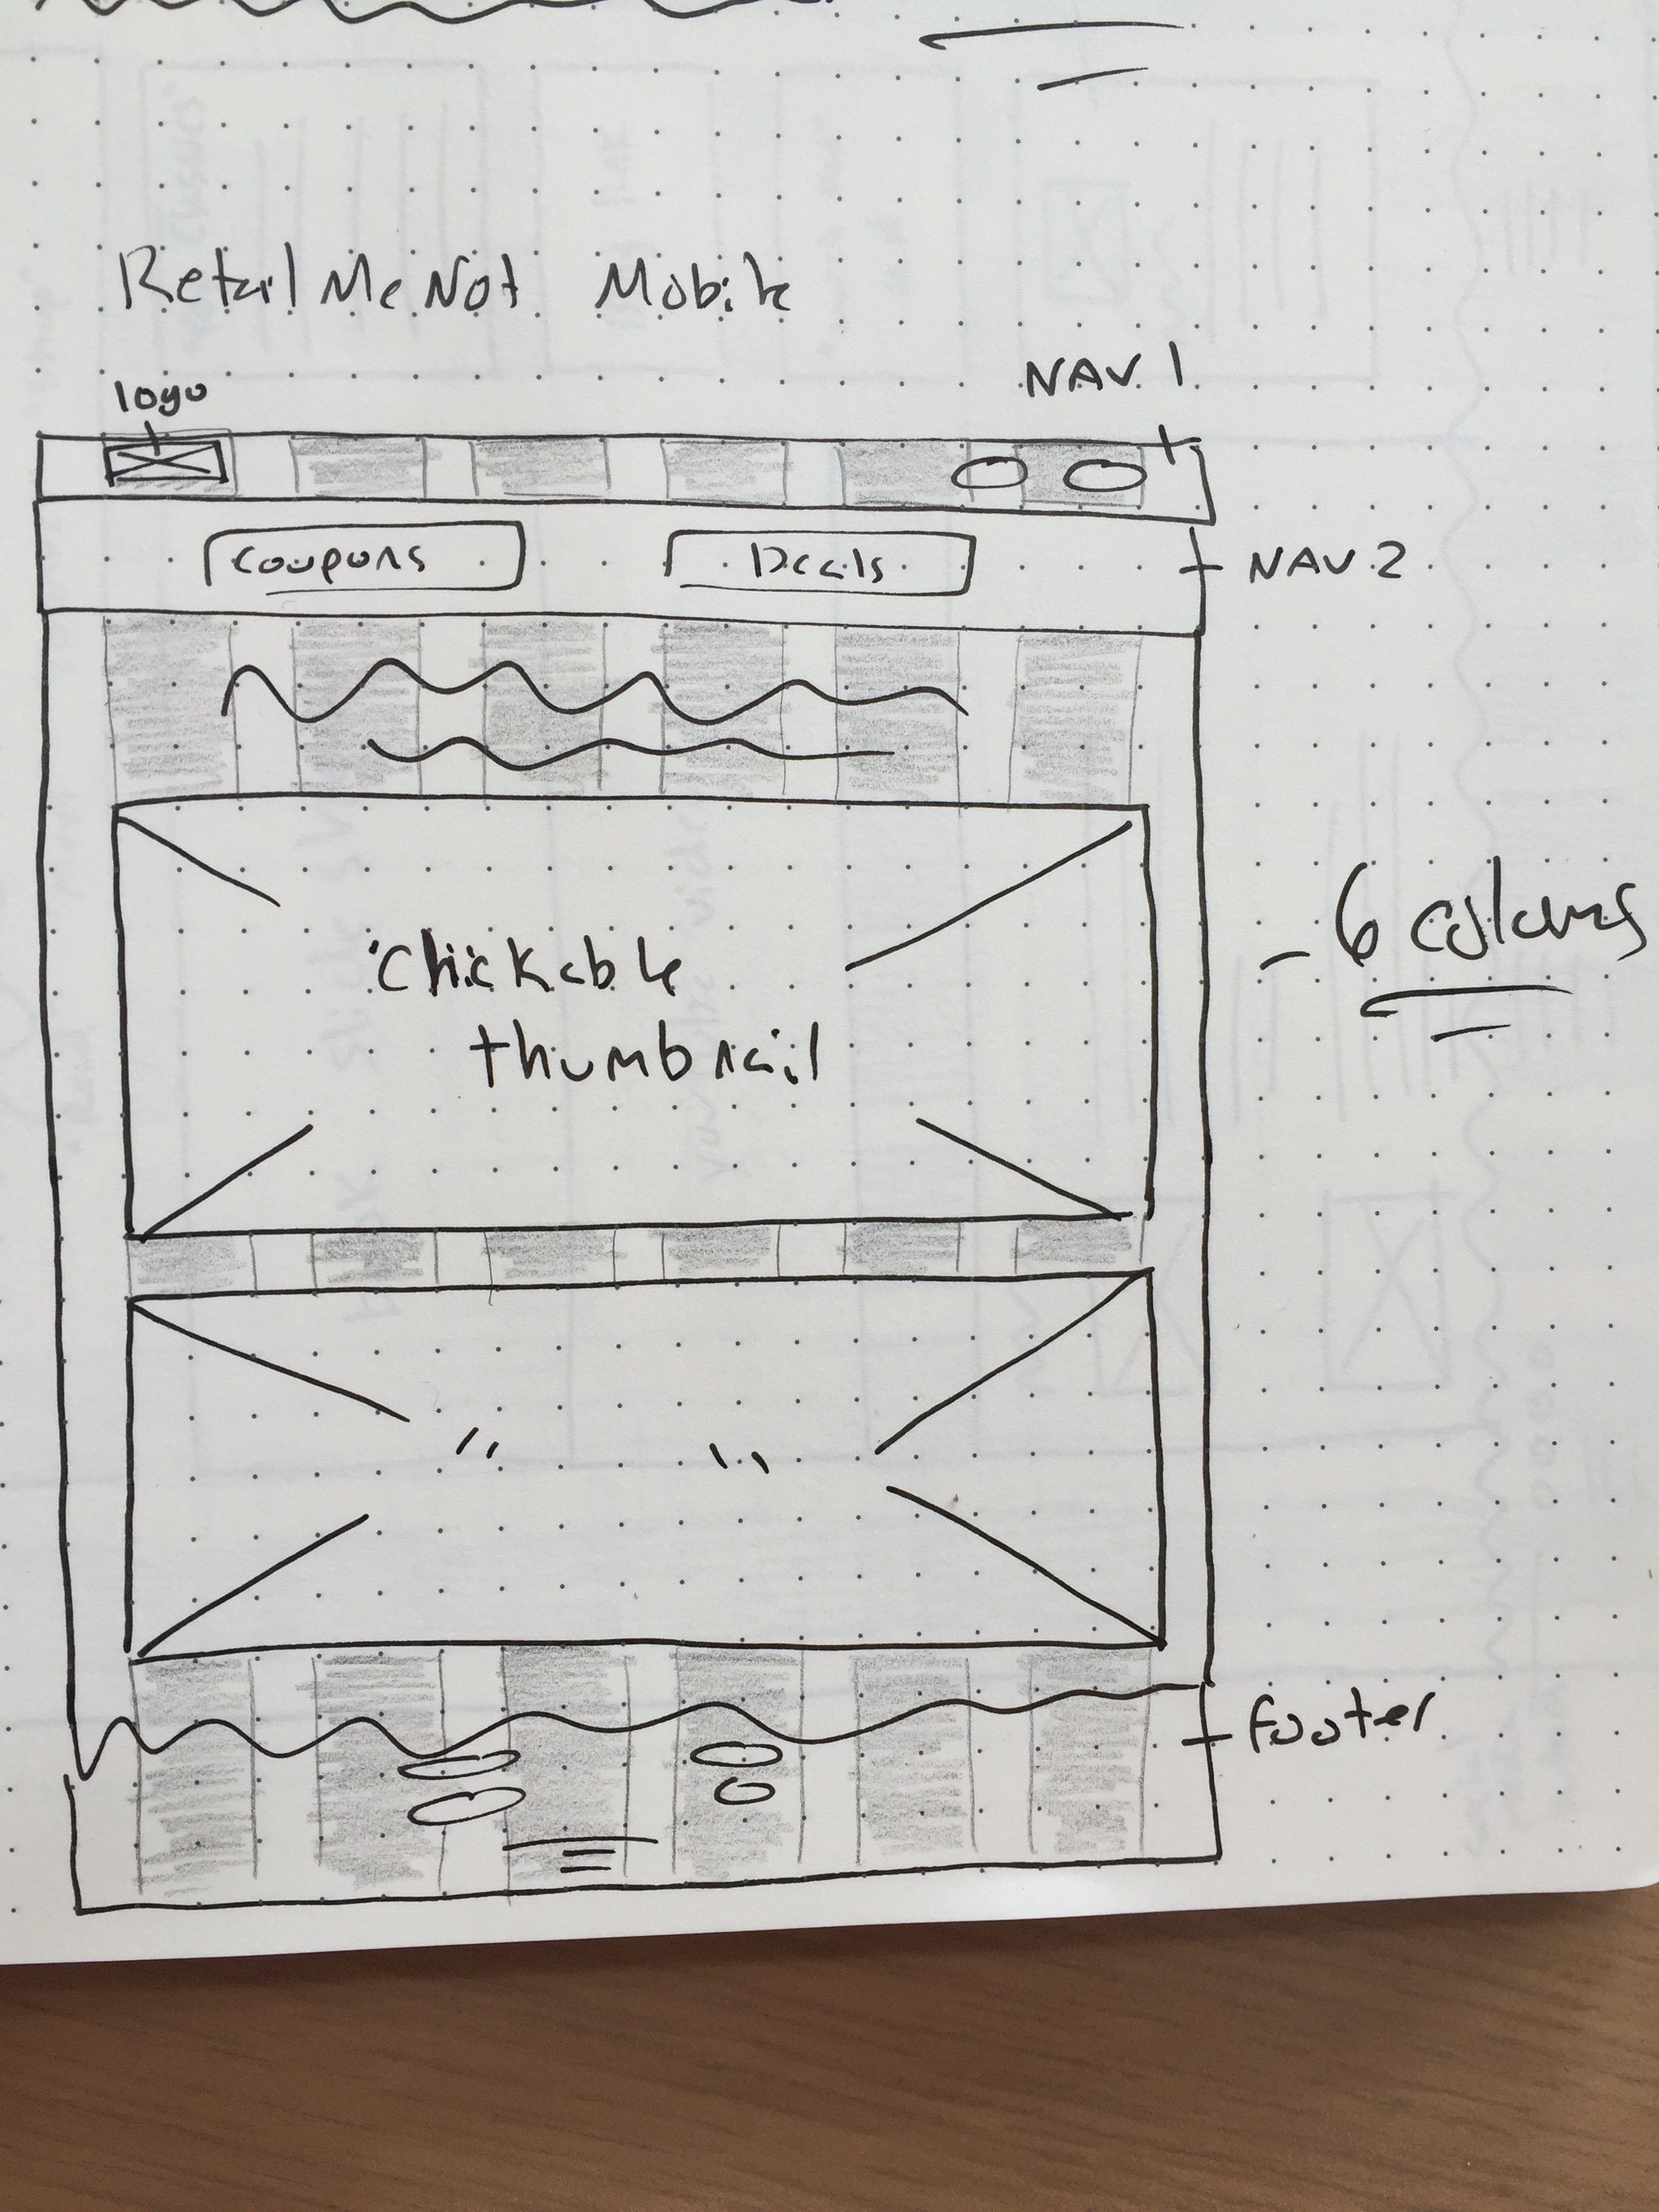 RetailMeNot Mobile
logo
NAV 1
Coupons
Deals
NAV 2
Clickable
thumbnail
- 6 columns
" "
footer